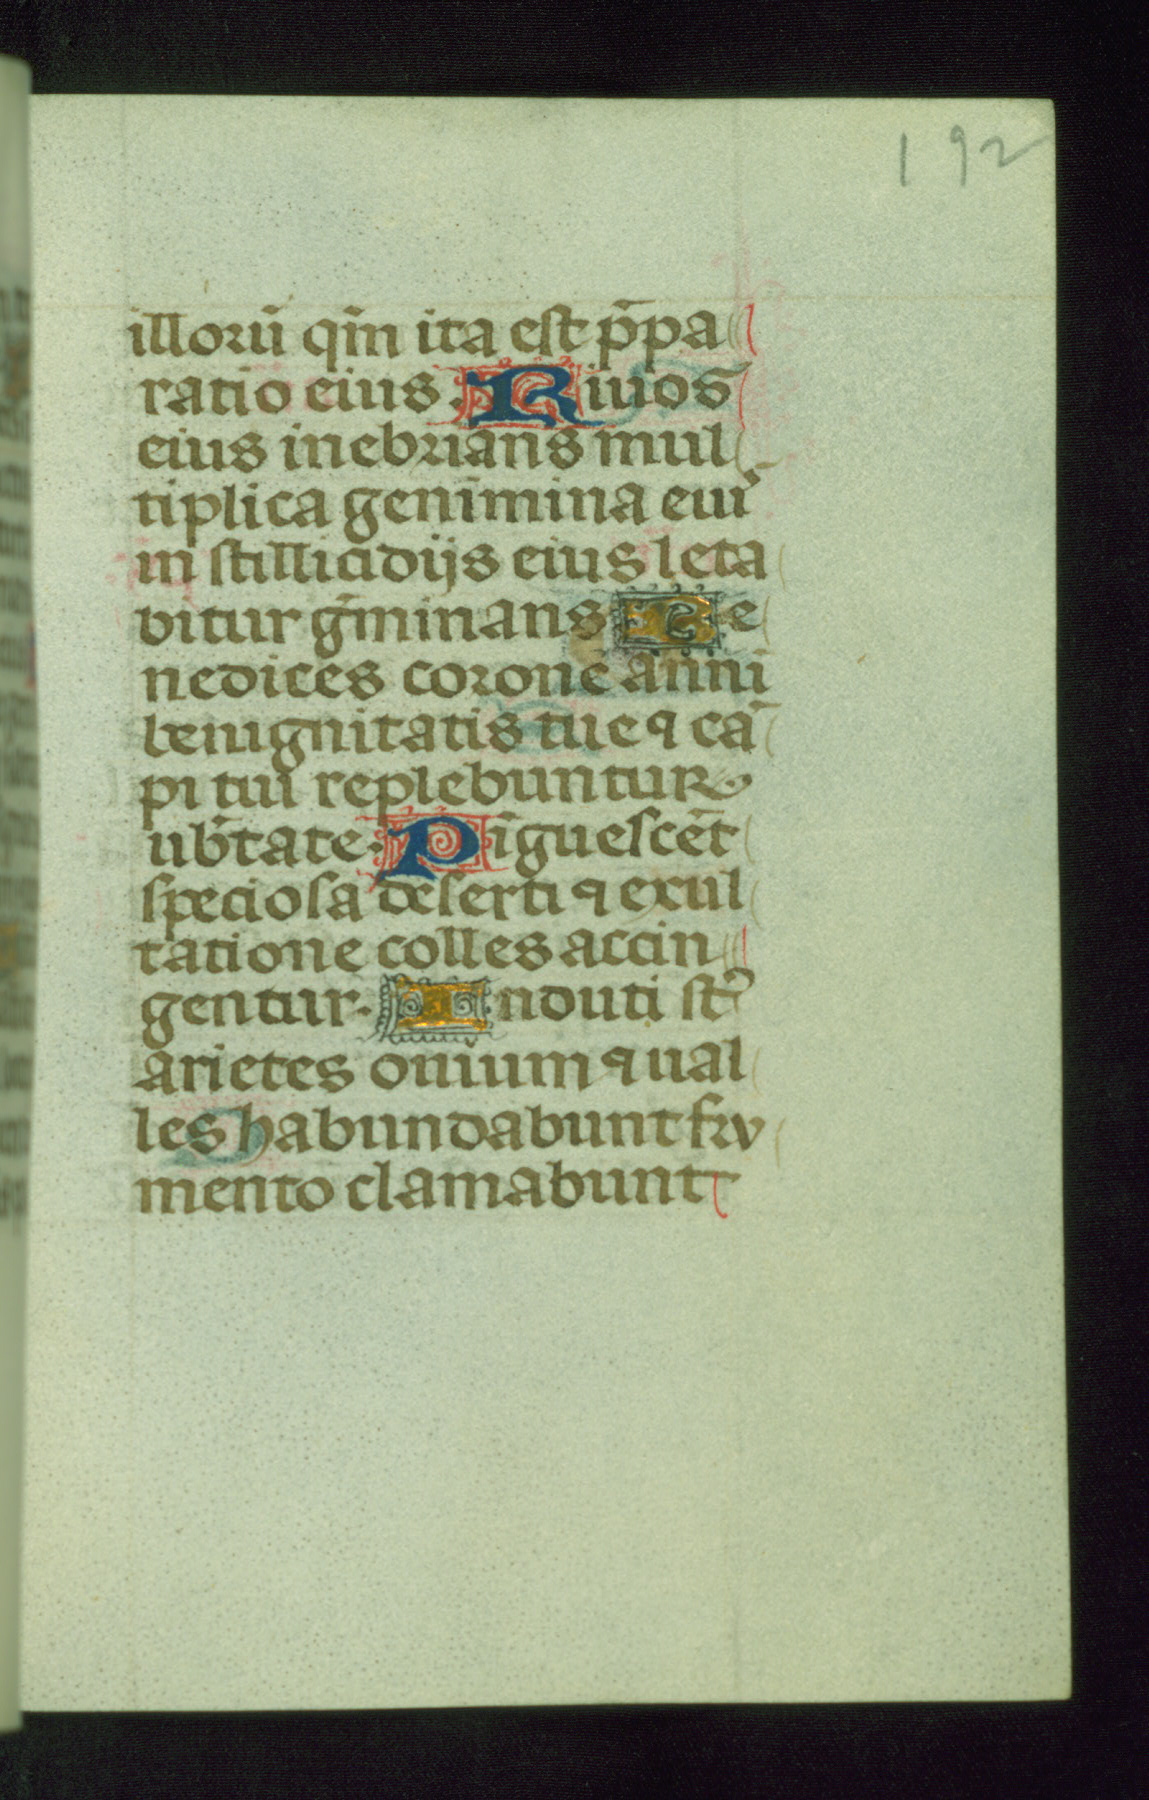 192
illorū qm̄ ita est p̄pa
ratio eius. Riuos
eius inebrians mul
tiplica genimina eius
in stillicidijs eius leta
bitur ḡminans Be
nedices corone anni
benignitatis tue ꝯ cā
pi tui replebuntur
ub̄tate. Pīguescēt
speciosa deserti ꝯ exul
tatione colles accin
gentur. Induti st̄
arietes ouium ꝯ ual
les habundabunt fru
mento clamabunt